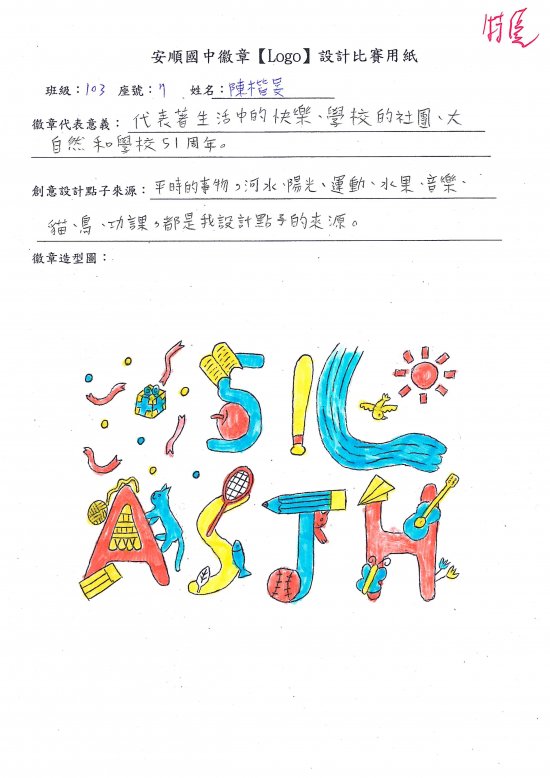 特優
安順國中徽章【Logo】設計比賽用紙
班級：103 座號：7 姓名：陳楷昊
徽章代表意義：代表著生活中的快樂、學校的社團、大
自然和學校51周年。
創意設計點子來源：平時的事物，河水、陽光、運動、水果、音樂、
貓、鳥、功課，都是我設計點子的來源。
徽章造型圖：
51L
ASJH